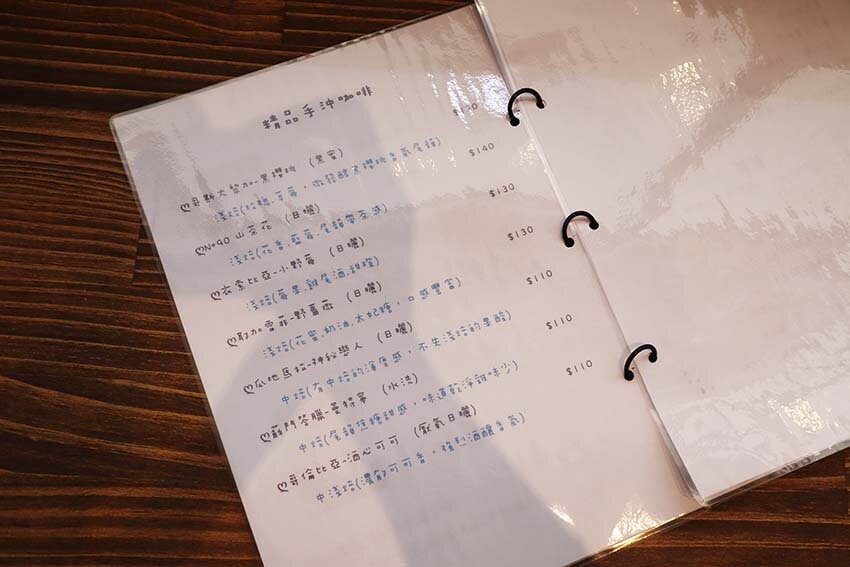 精品手沖咖啡
ღ哥斯大黎加-黑櫻桃 (黑蜜)
淺焙(草莓，微發酵黑櫻桃香氣尾韻)
ღN+90 山茶花 (日曬) $140
淺焙(花香.藍莓.尾韻帶茶感)
ღ衣索比亞-小野莓 (日曬) $130
淺焙(莓果.雞尾酒.甜橙)
ღ耶加雪菲-野薔薇 (日曬) $130
淺焙(花蜜.奶油.太妃糖，口感豐富)
ღ瓜地馬拉-神秘戀人 (日曬) $110
中焙(有中焙的渾厚感，不失淺焙的果酸)
ღ蘇門答臘-曼特寧 (水洗) $110
中焙(尾韻焦糖甜感，味道乾淨雜味少)
ღ哥倫比亞-酒心可可 (厭氧日曬) $110
中淺焙(濃郁可可香，強烈酒釀香氣)